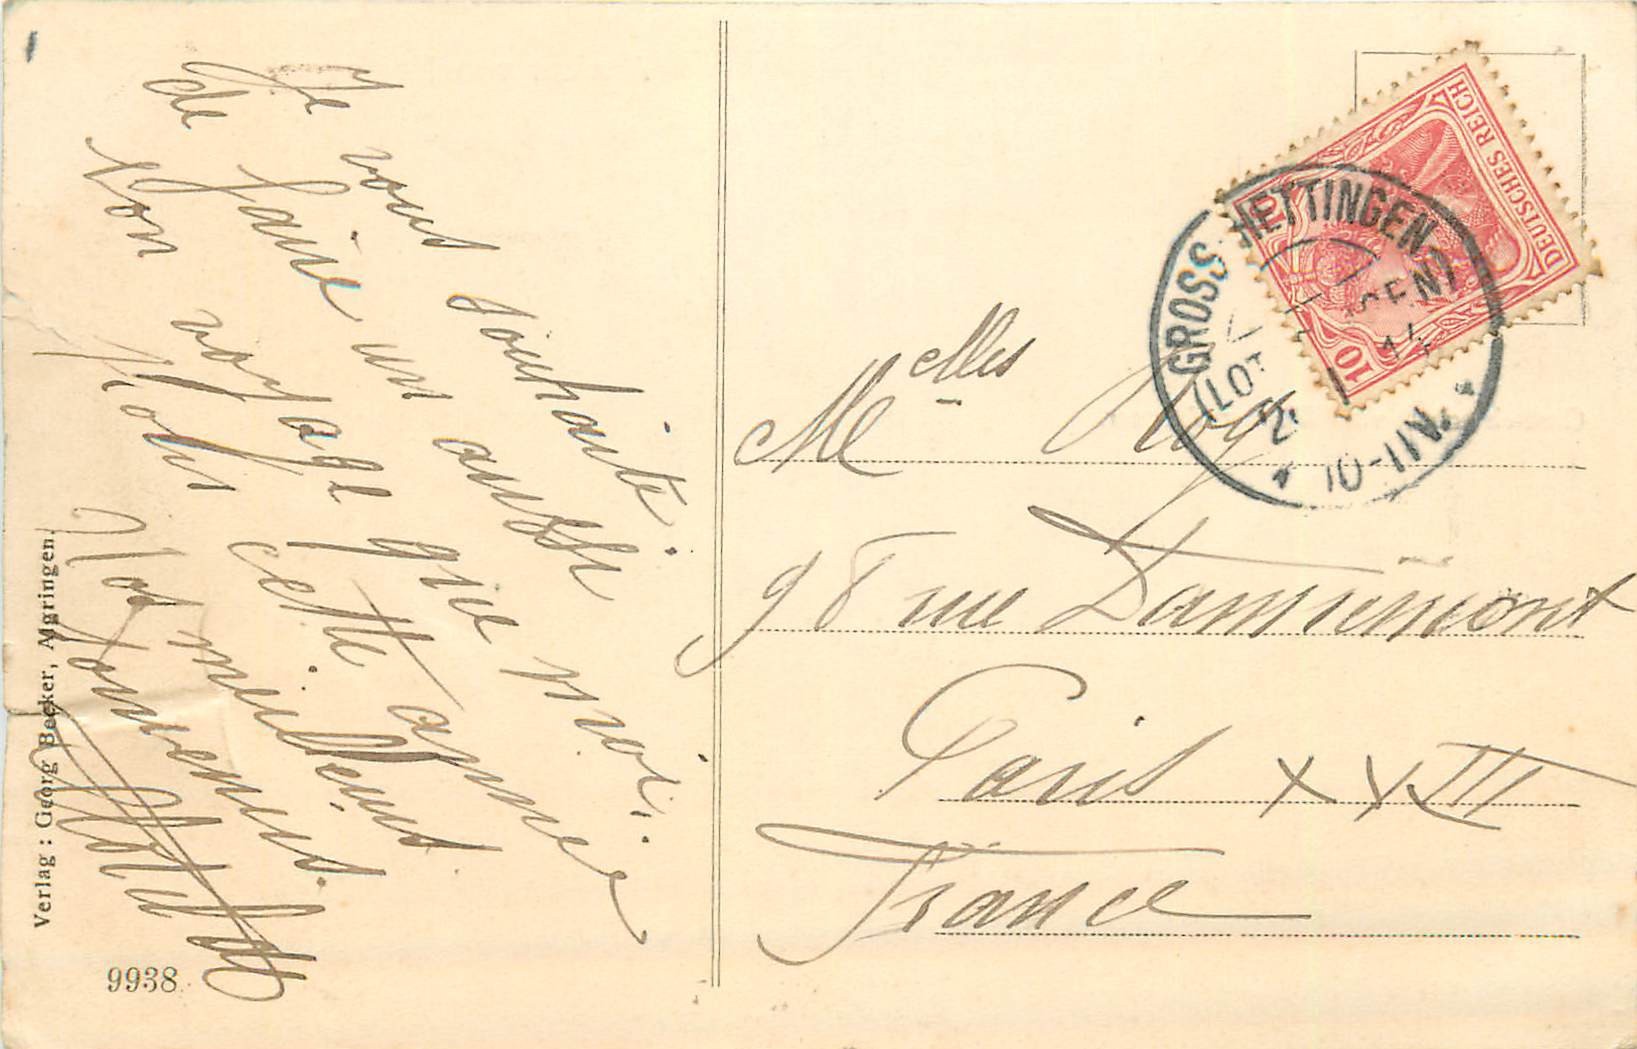 Je vous souhaite
de faire un aussi
bon voyage que moi.
Nohr cette annee
Nos meilleurs
Verlag : Georg Becker, Algringen.
9938
DEUTSCHES REICH
10
10
GROSS-HETTINGEN
(LOT GEN)
14
10-11N.
Melles
98 rue Damrémont
Paris XVIII
France